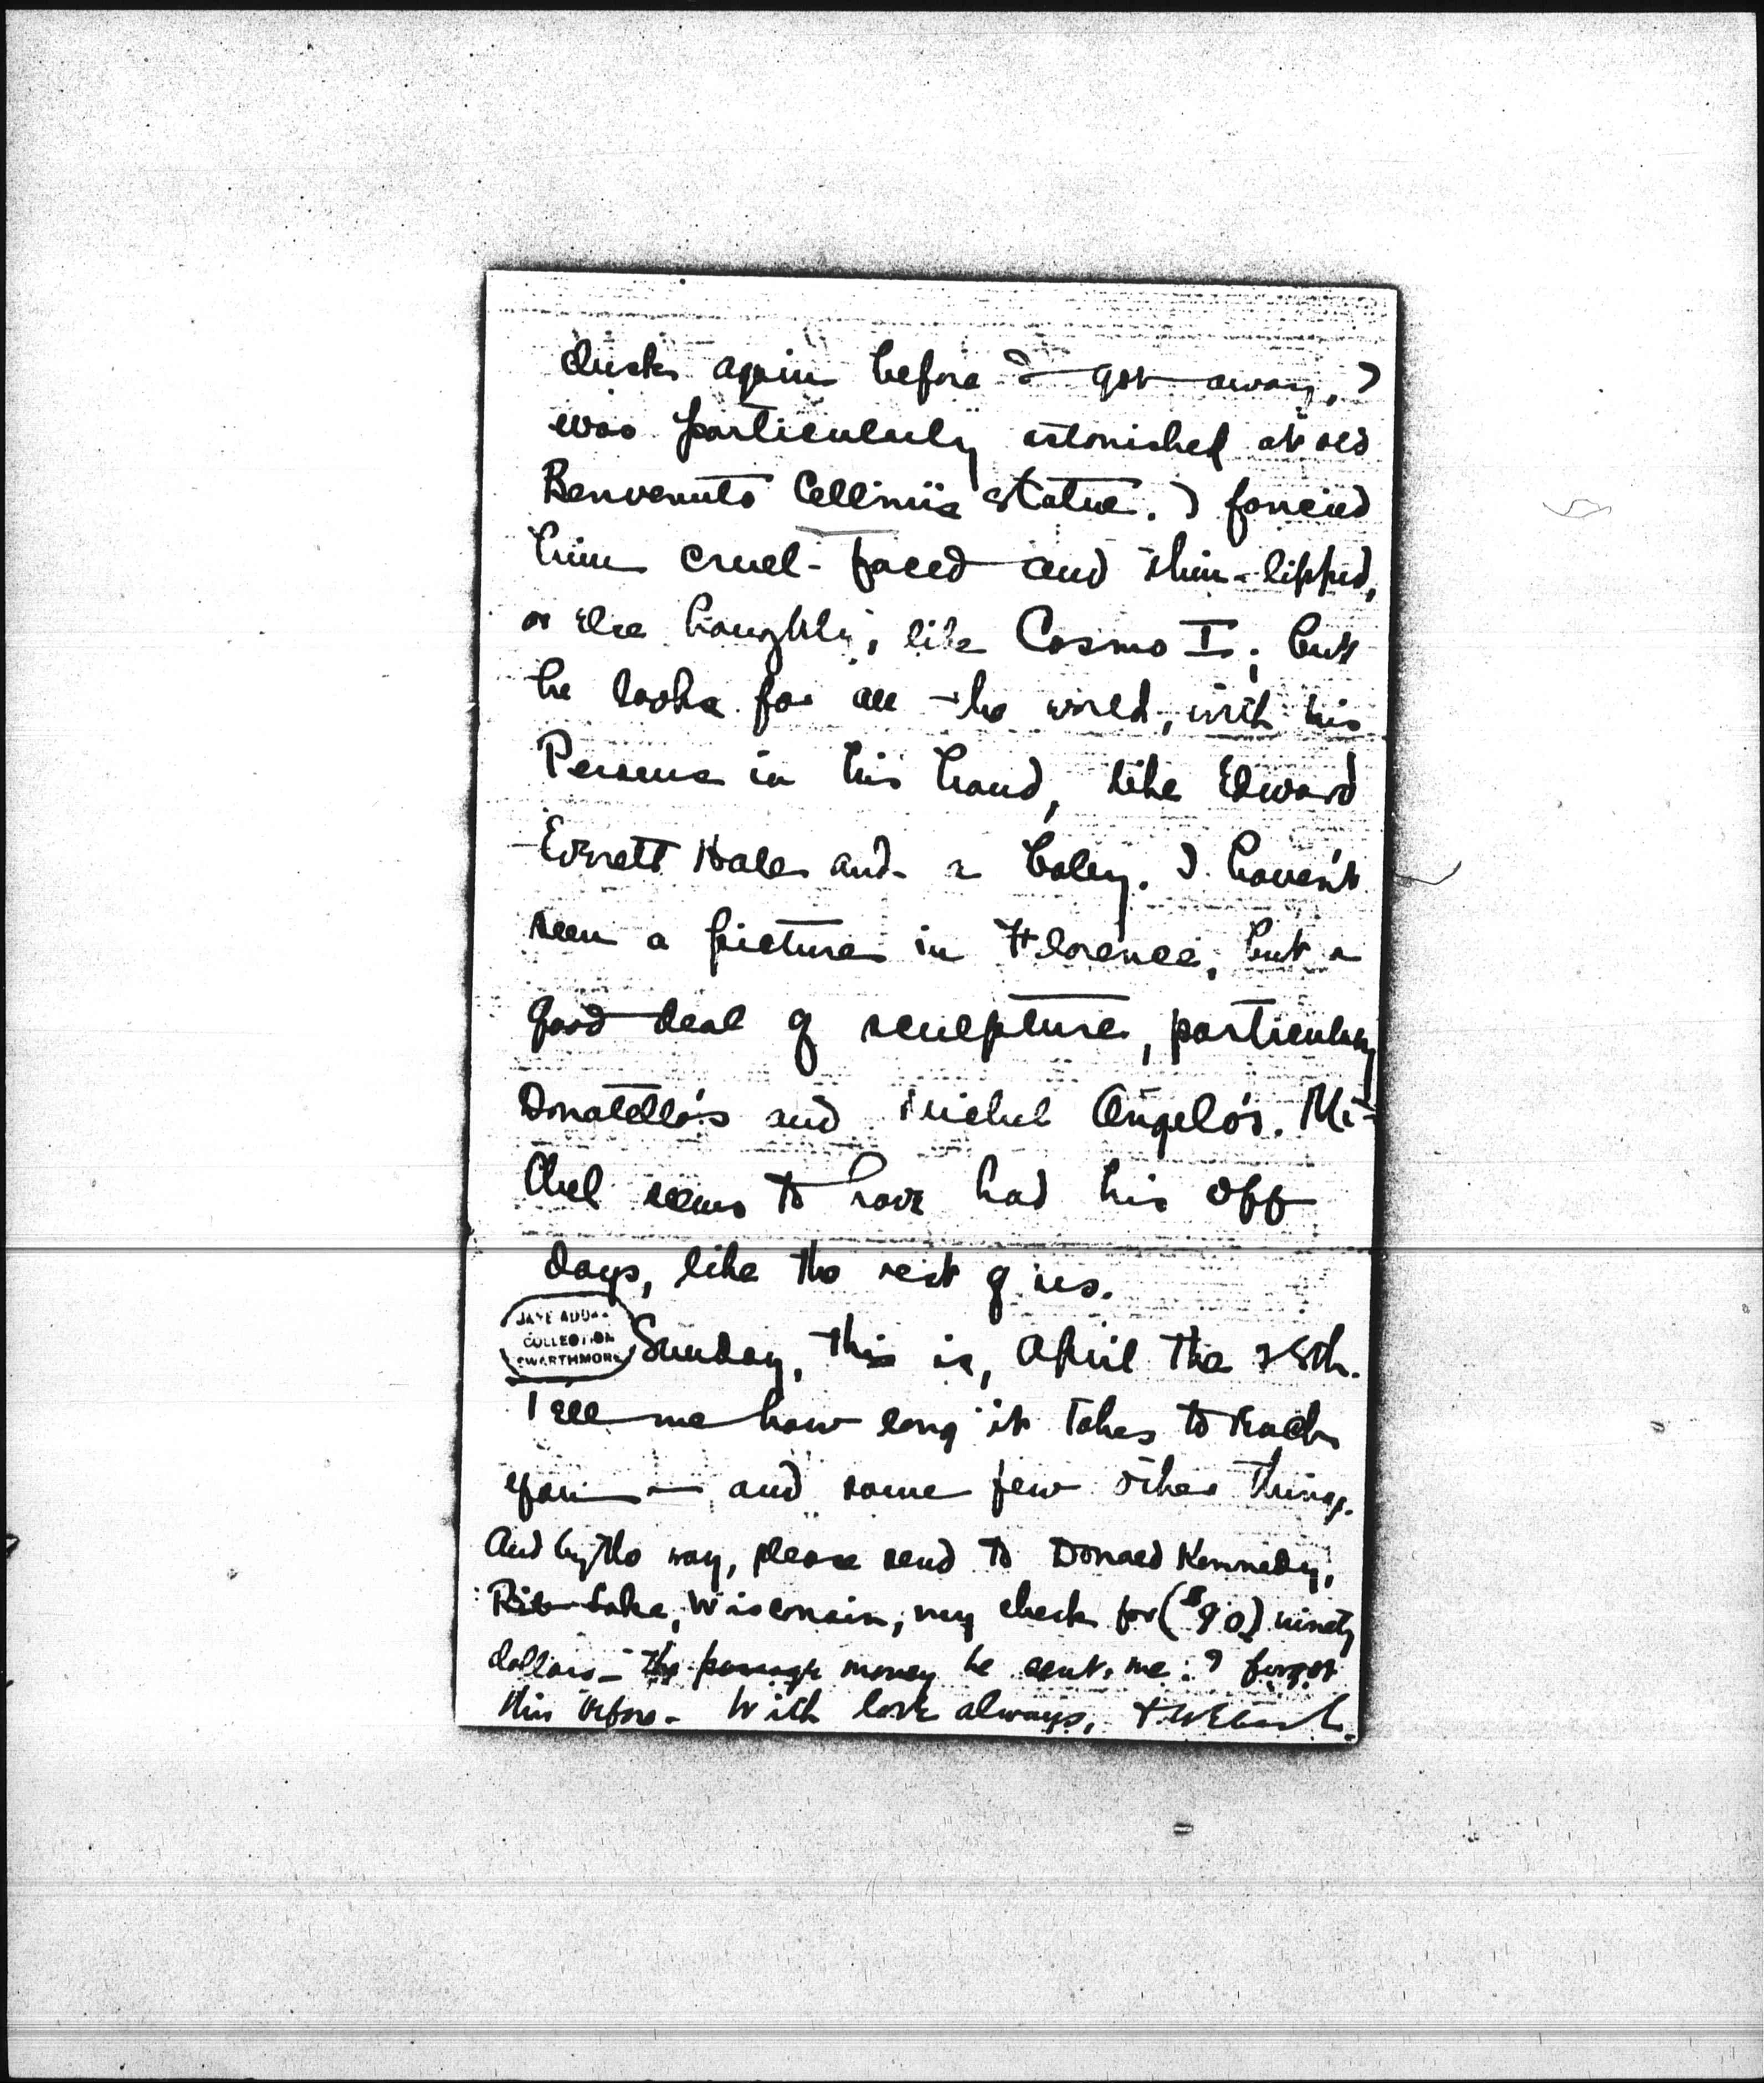 dusk again before I got away, I
was particularly astonished at old
Benvenuto Cellini's statue. I fancied
him cruel-faced and thin-lipped,
or else haughty, like Cosmo I.; but
he looks for all the world, with his
Perseus in his hand, like Edward
Everett Hale and a baby. I haven't
seen a picture in Florence, but a
good deal of sculpture, particularly
Donatello's and Michel Angelo's. Mi-
chel seems to have had his off
days, like the rest of us.
JANE ADDA
COLLECTION
SWARTHMORE
Sunday, this is, April the 28th.
Tell me how long it takes to reach
you — and some few other things.
And by the way, please send to Donald Kennedy,
Rib Lake, Wisconsin, my check for ($90) ninety
dollars — the passage money he sent me: I forgot
this before. With love always,